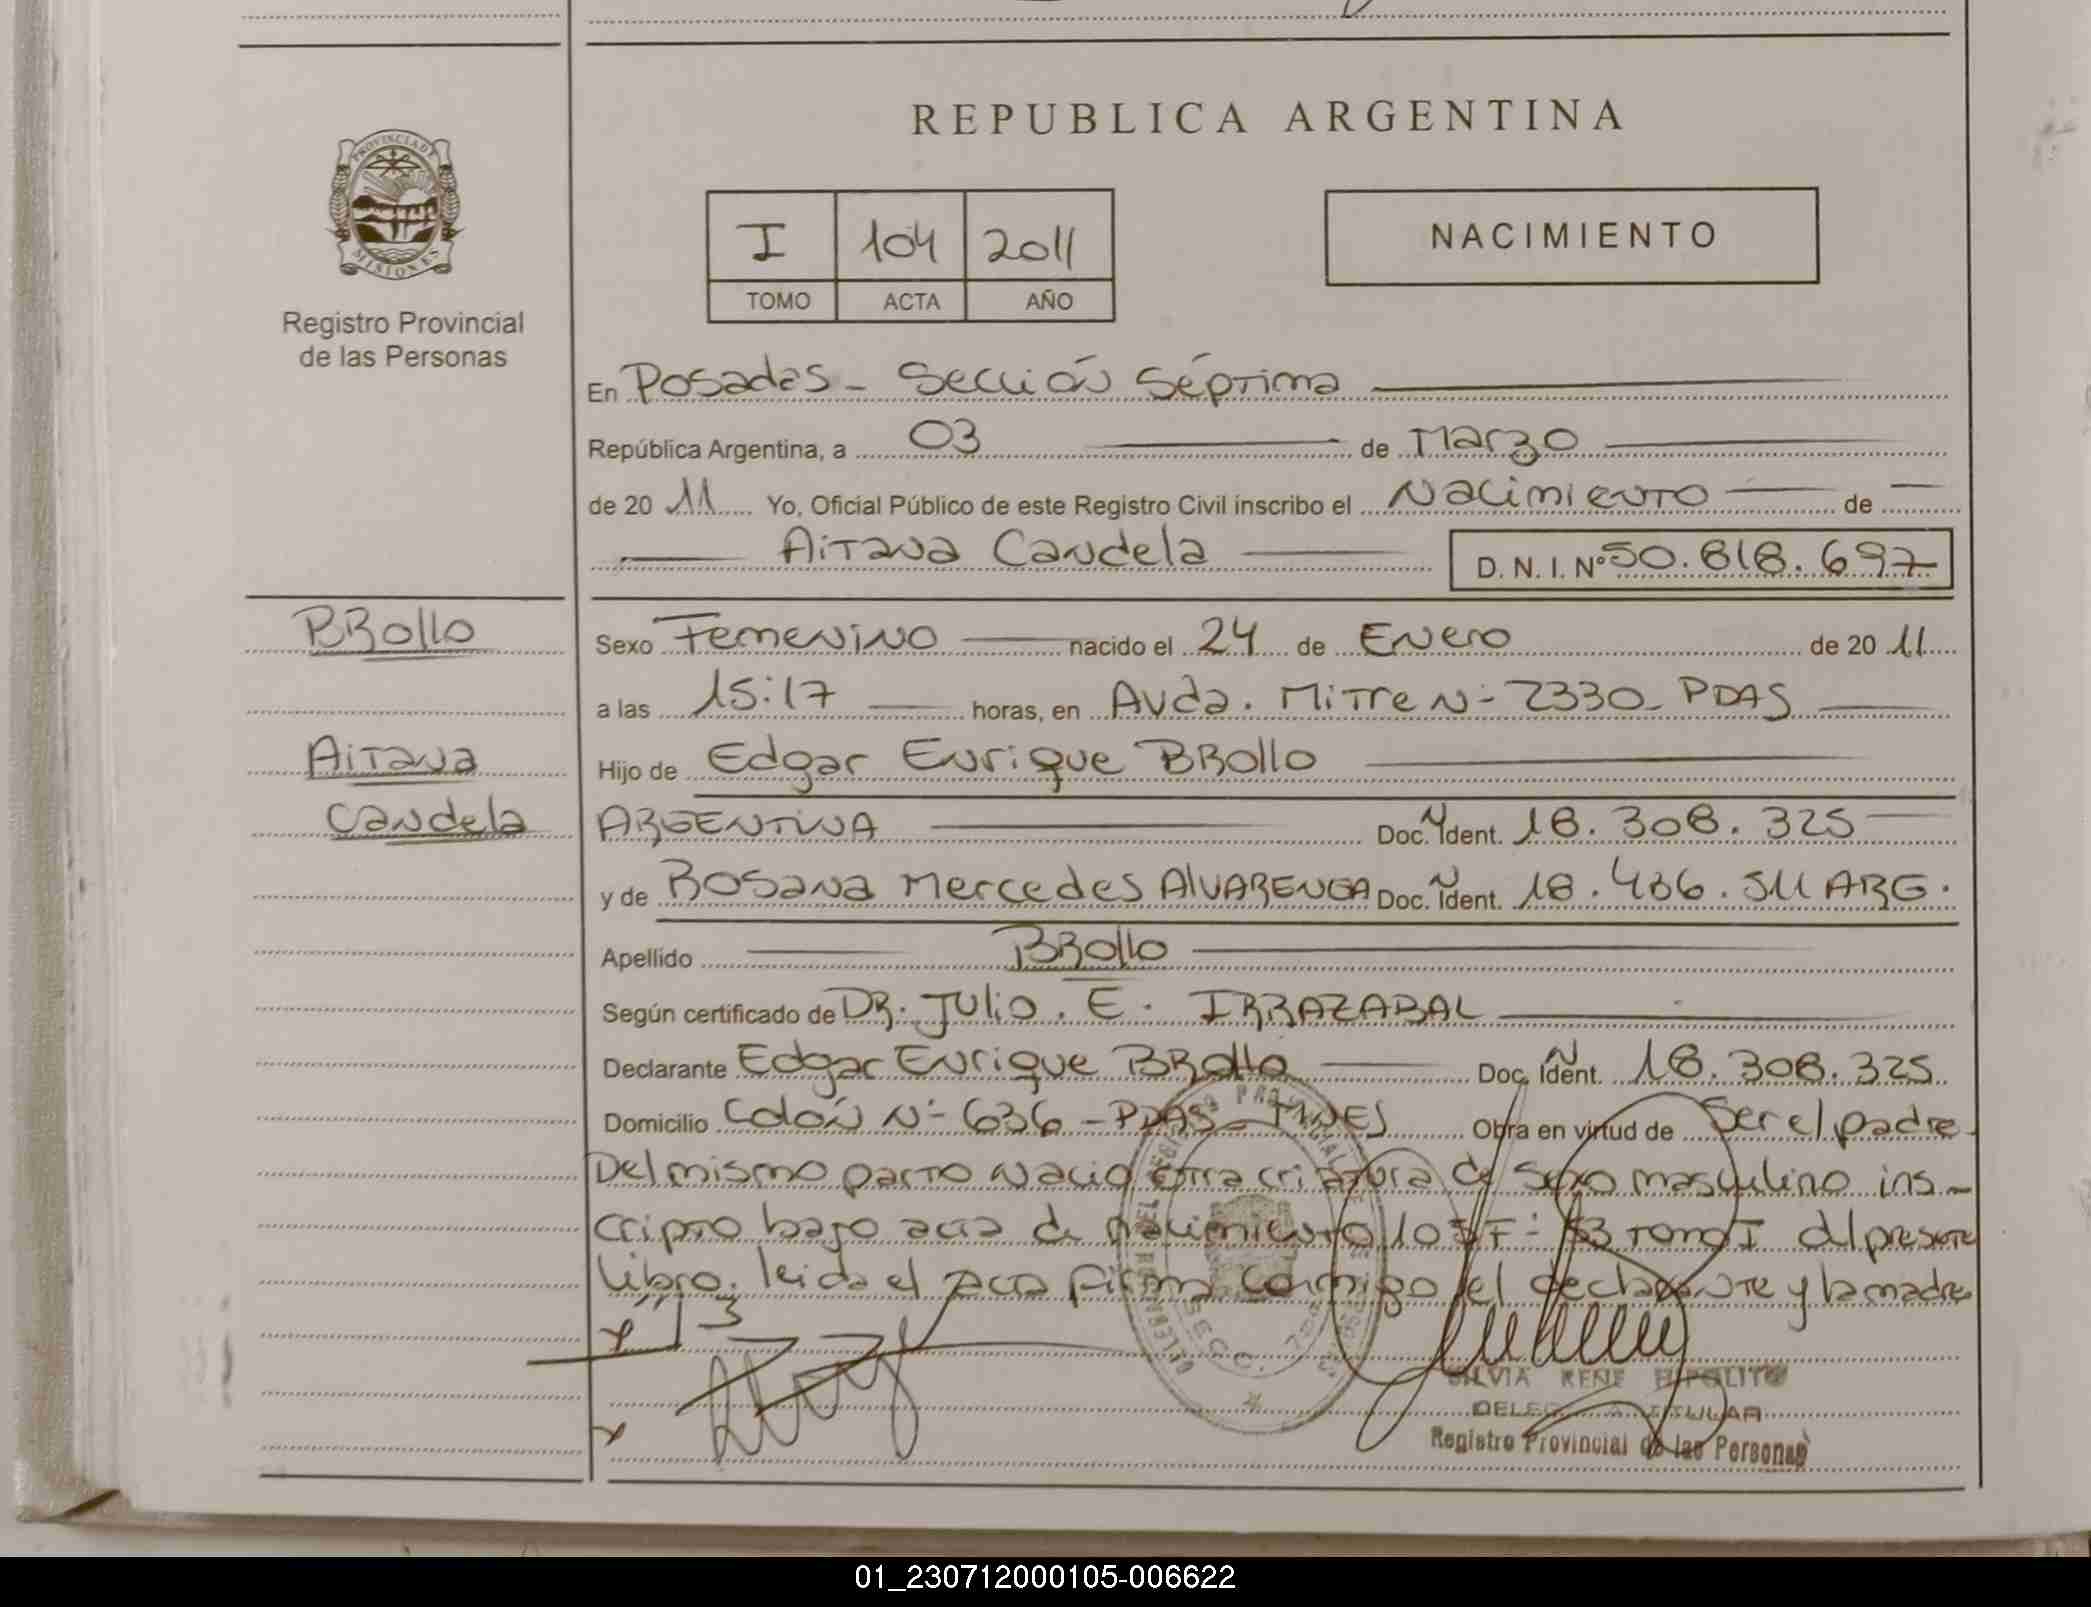 REPUBLICA ARGENTINA
PROVINCIA DE
MISIONES
Registro Provincial
de las Personas
I 104 2011
TOMO ACTA AÑO
NACIMIENTO
En Posadas - Sección Séptima
República Argentina, a 03 de Marzo
de 20 11 Yo, Oficial Público de este Registro Civil inscribo el Nacimiento de
Aitana Candela D. N. I. Nº 50.818.697
BRollo
Aitana
Candela
Sexo Femenino nacido el 24 de Enero de 20 11
a las 15:17 horas, en Avda. Mitre N- 2330 - PDAS
Hijo de Edgar Enrique BRollo
ARGENTINA Doc. Ident. 18.308.325
y de Rosana Mercedes AlVARENGA Doc. Ident. 18.436.511 ARG.
Apellido BRollo
Según certificado de DR. Julio. E. IRRAZABAL
Declarante Edgar Enrique BRollo Doc. Ident. 18.308.325
Domicilio Colón N- 636 - PDAS - MNES Obra en virtud de Ser el padre.
Del mismo parto nacio otra criatura de sexo masculino ins-
cripto bajo acta de nacimiento 103 F- 53 Tomo I del presente
libro. leida el acta firma conmigo el declarante y la madre
SILVIA RENE HIPOLITO
DELEGADA TITULAR
Registro Provincial de las Personas
01_230712000105-006622